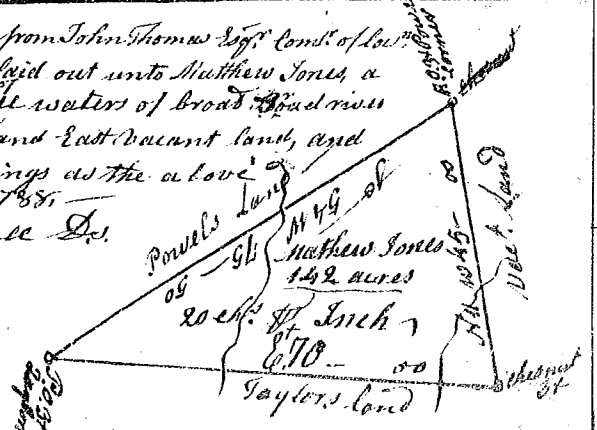 from John Thomas Esqr. Comr. of Loc
laid out unto Matthew Jones, a
waters of broad Road river
and East Vacant land, and
ings as the above
1788. —
Ds.
P.O. 3X
Corner
Chesnut
Powels Land
50 — 75
54 W
Mathew Jones
142 acres
20 chs. Pr. Inch
E. 70 — 00
Taylors land
N W 45 — 00
Vact. Land
Chesnut
3X
P.O. 3X